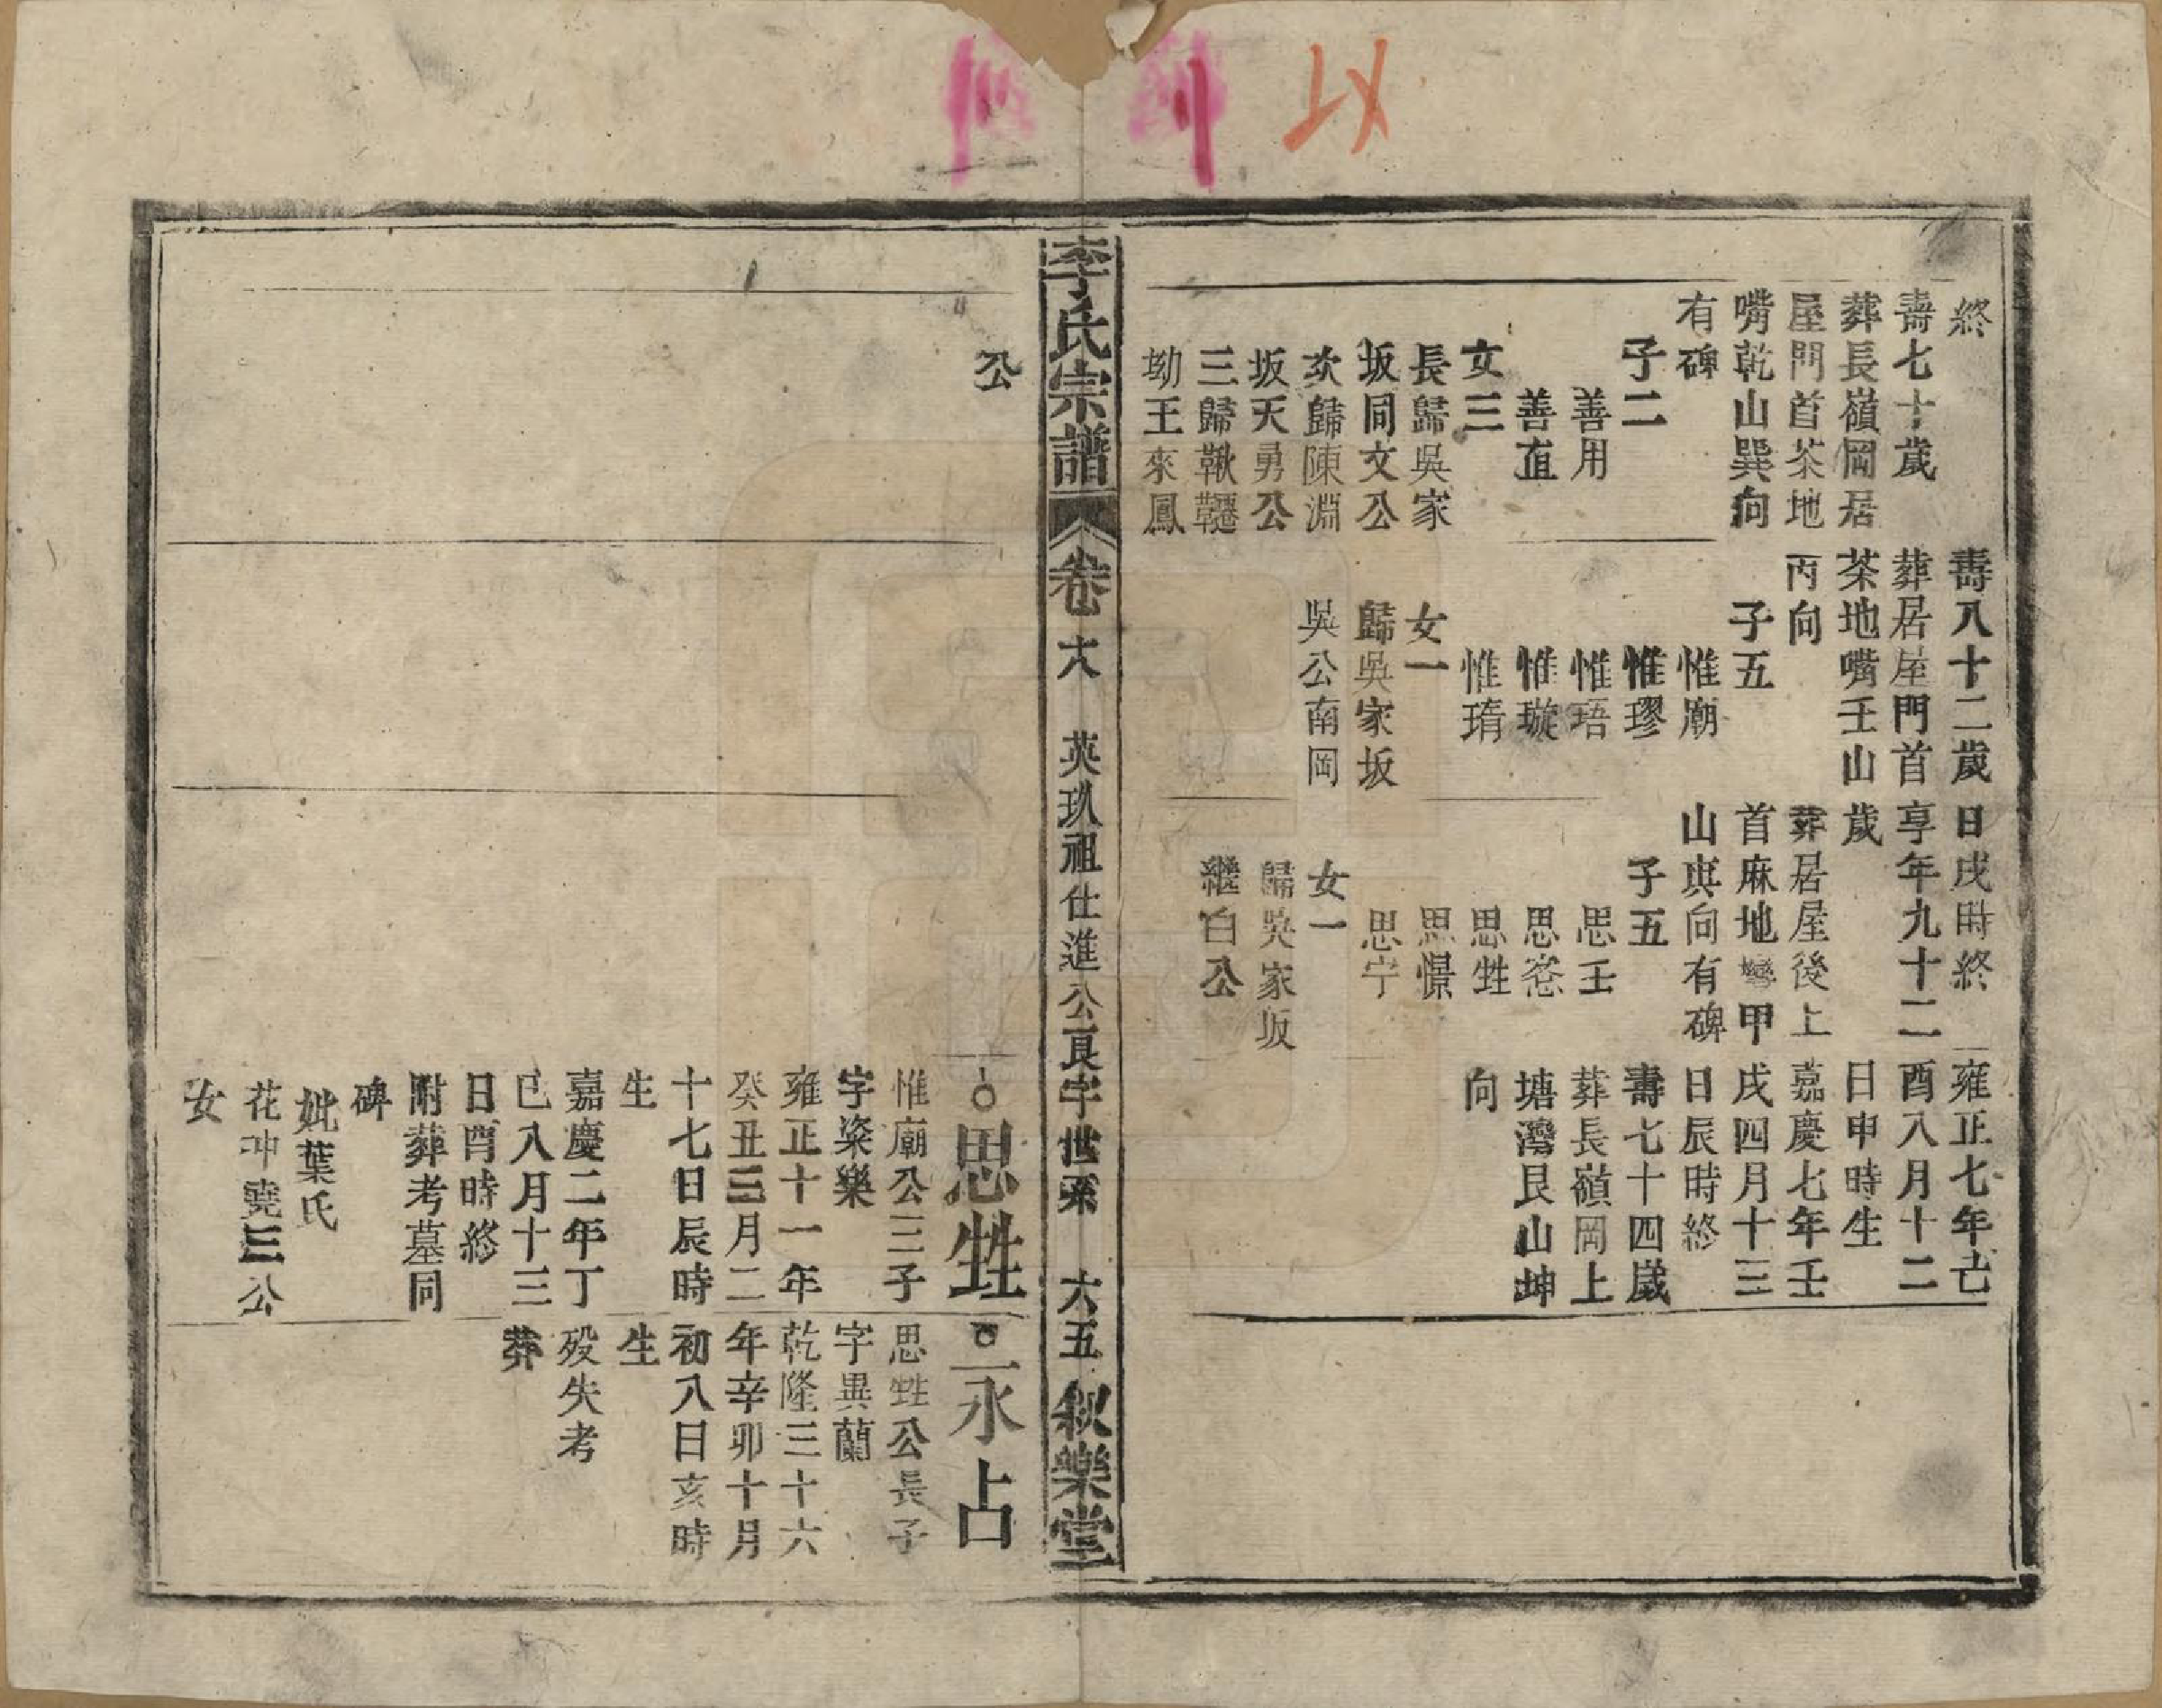 終
壽七十歲
葬長嶺岡居
屋門首茶地
嘴乾山巽向
有碑
子二
善用
善直
女三
長歸吳家
坂同文公
次歸陳淵
坂天勇公
三歸鞦韆
坳王來鳳
公
壽八十二歲
葬居屋門首
茶地嘴壬山
丙向
子五
惟廟
惟璆
惟珸
惟璇
惟琦
女一
歸吳家坂
吳公南岡
日戌時終
享年九十二
歲
葬居屋後上
首麻地灣甲
山庚向有碑
子五
思壬
思卺
思甡
思憬
思宁
女一
歸吳家坂
繼白公
雍正七年己
酉八月十二
日申時生
嘉慶七年壬
戌四月十三
日辰時終
壽七十四歲
葬長嶺岡上
塘灣艮山坤
向
李氏宗譜
卷六 英玖祖仕進公良字世系 六五
敘樂堂
思甡
惟廟公三子
字粢樂
雍正十一年
癸丑三月二
十七日辰時
生
嘉慶二年丁
巳八月十三
日酉時終
附葬考墓同
碑
妣葉氏
花冲堯三公
女
永占
思甡公長子
字異蘭
乾隆三十六
年辛卯十月
初八日亥時
生
殁失考
葬